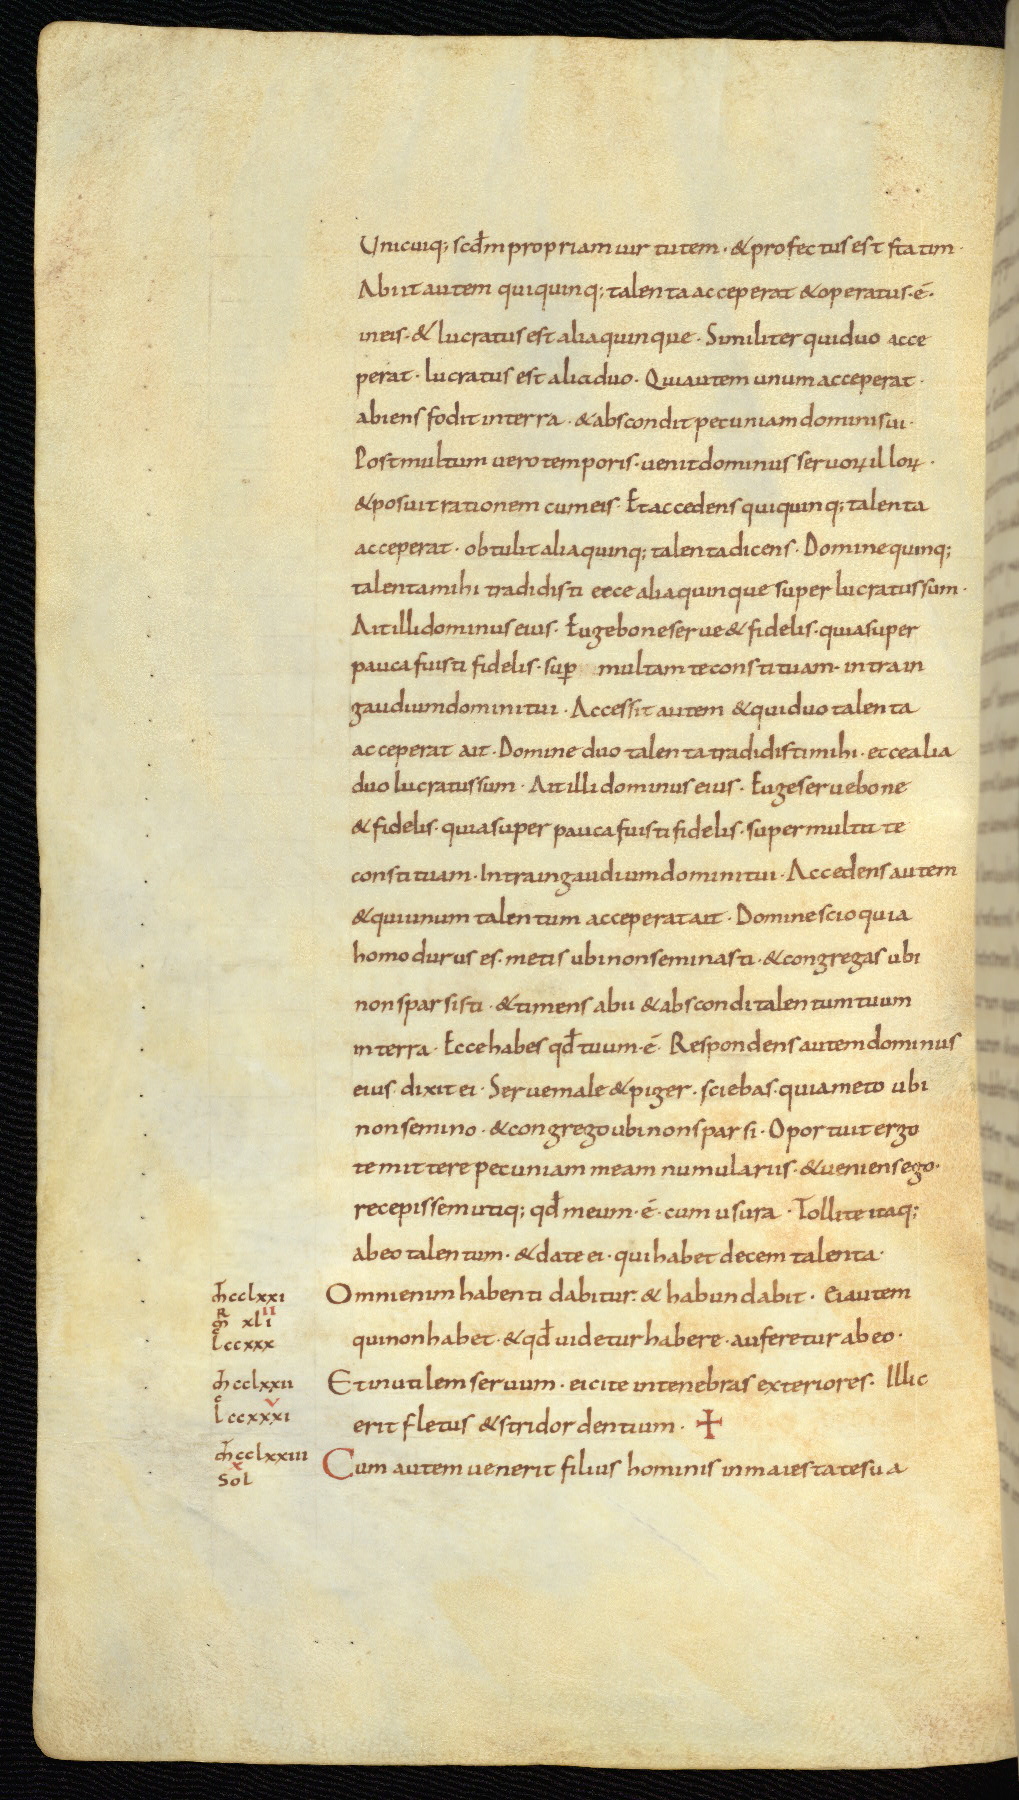 Unicuiq; scđm propriam uirtutem · & profectus est statim ·
Abiit autem qui quinq; talenta acceperat & operatus · ē ·
in eis · & lucratus est alia quinque · Similiter qui duo acce
perat · lucratus est alia duo · Qui autem unum acceperat ·
abiens fodit in terra · & abscondit pecuniam domini sui ·
Post multum uero temporis · uenit dominus seruoꝝ illoꝝ ·
& posuit rationem cum eis · Et accedens qui quinq; talenta
acceperat · obtulit alia quinq; talenta dicens · Domine quinq;
talenta mihi tradidisti ecce alia quinque super lucratus sum ·
Ait illi dominus eius · Euge bone serue & fidelis · quia super
pauca fuisti fidelis · suꝑ multam te constituam · intra in
gaudium domini tui · Accessit autem & qui duo talenta
acceperat ait · Domine duo talenta tradidisti mihi · ecce alia
duo lucratus sum · Ait illi dominus eius · Euge serue bone
& fidelis · quia super pauca fuisti fidelis · super multa te
constituam · Intra in gaudium domini tui · Accedens autem
& qui unum talentum acceperat ait · Domine scio quia
homo durus es · metis ubi non seminasti · & congregas ubi
non sparsisti · & timens abii & abscondi talentum tuum
in terra · Ecce habes qđ tuum · ē · Respondens autem dominus
eius dixit ei · Serue male & piger · sciebas · quia meto ubi
non semino · & congrego ubi non sparsi · Oportuit ergo
te mittere pecuniam meam numulariis · & ueniens ego ·
recepissem utiq; qđ meum · ē · cum usura · Tollite itaq;
ab eo talentum · & date ei · qui habet decem talenta ·
m̄ cclxxi
R ii
m̄ xli
l ccxxx
Omni enim habenti dabitur · & habundabit · Ei autem
qui non habet · & qđ uidetur habere · auferetur ab eo ·
m̄ cclxxii
v
l ccxxxi
Et inutilem seruum · eicite in tenebras exteriores · Illic
erit fletus & stridor dentium · ✝
m̄ cclxxiii
x
Sol
Cum autem uenerit filius hominis in maiestate sua